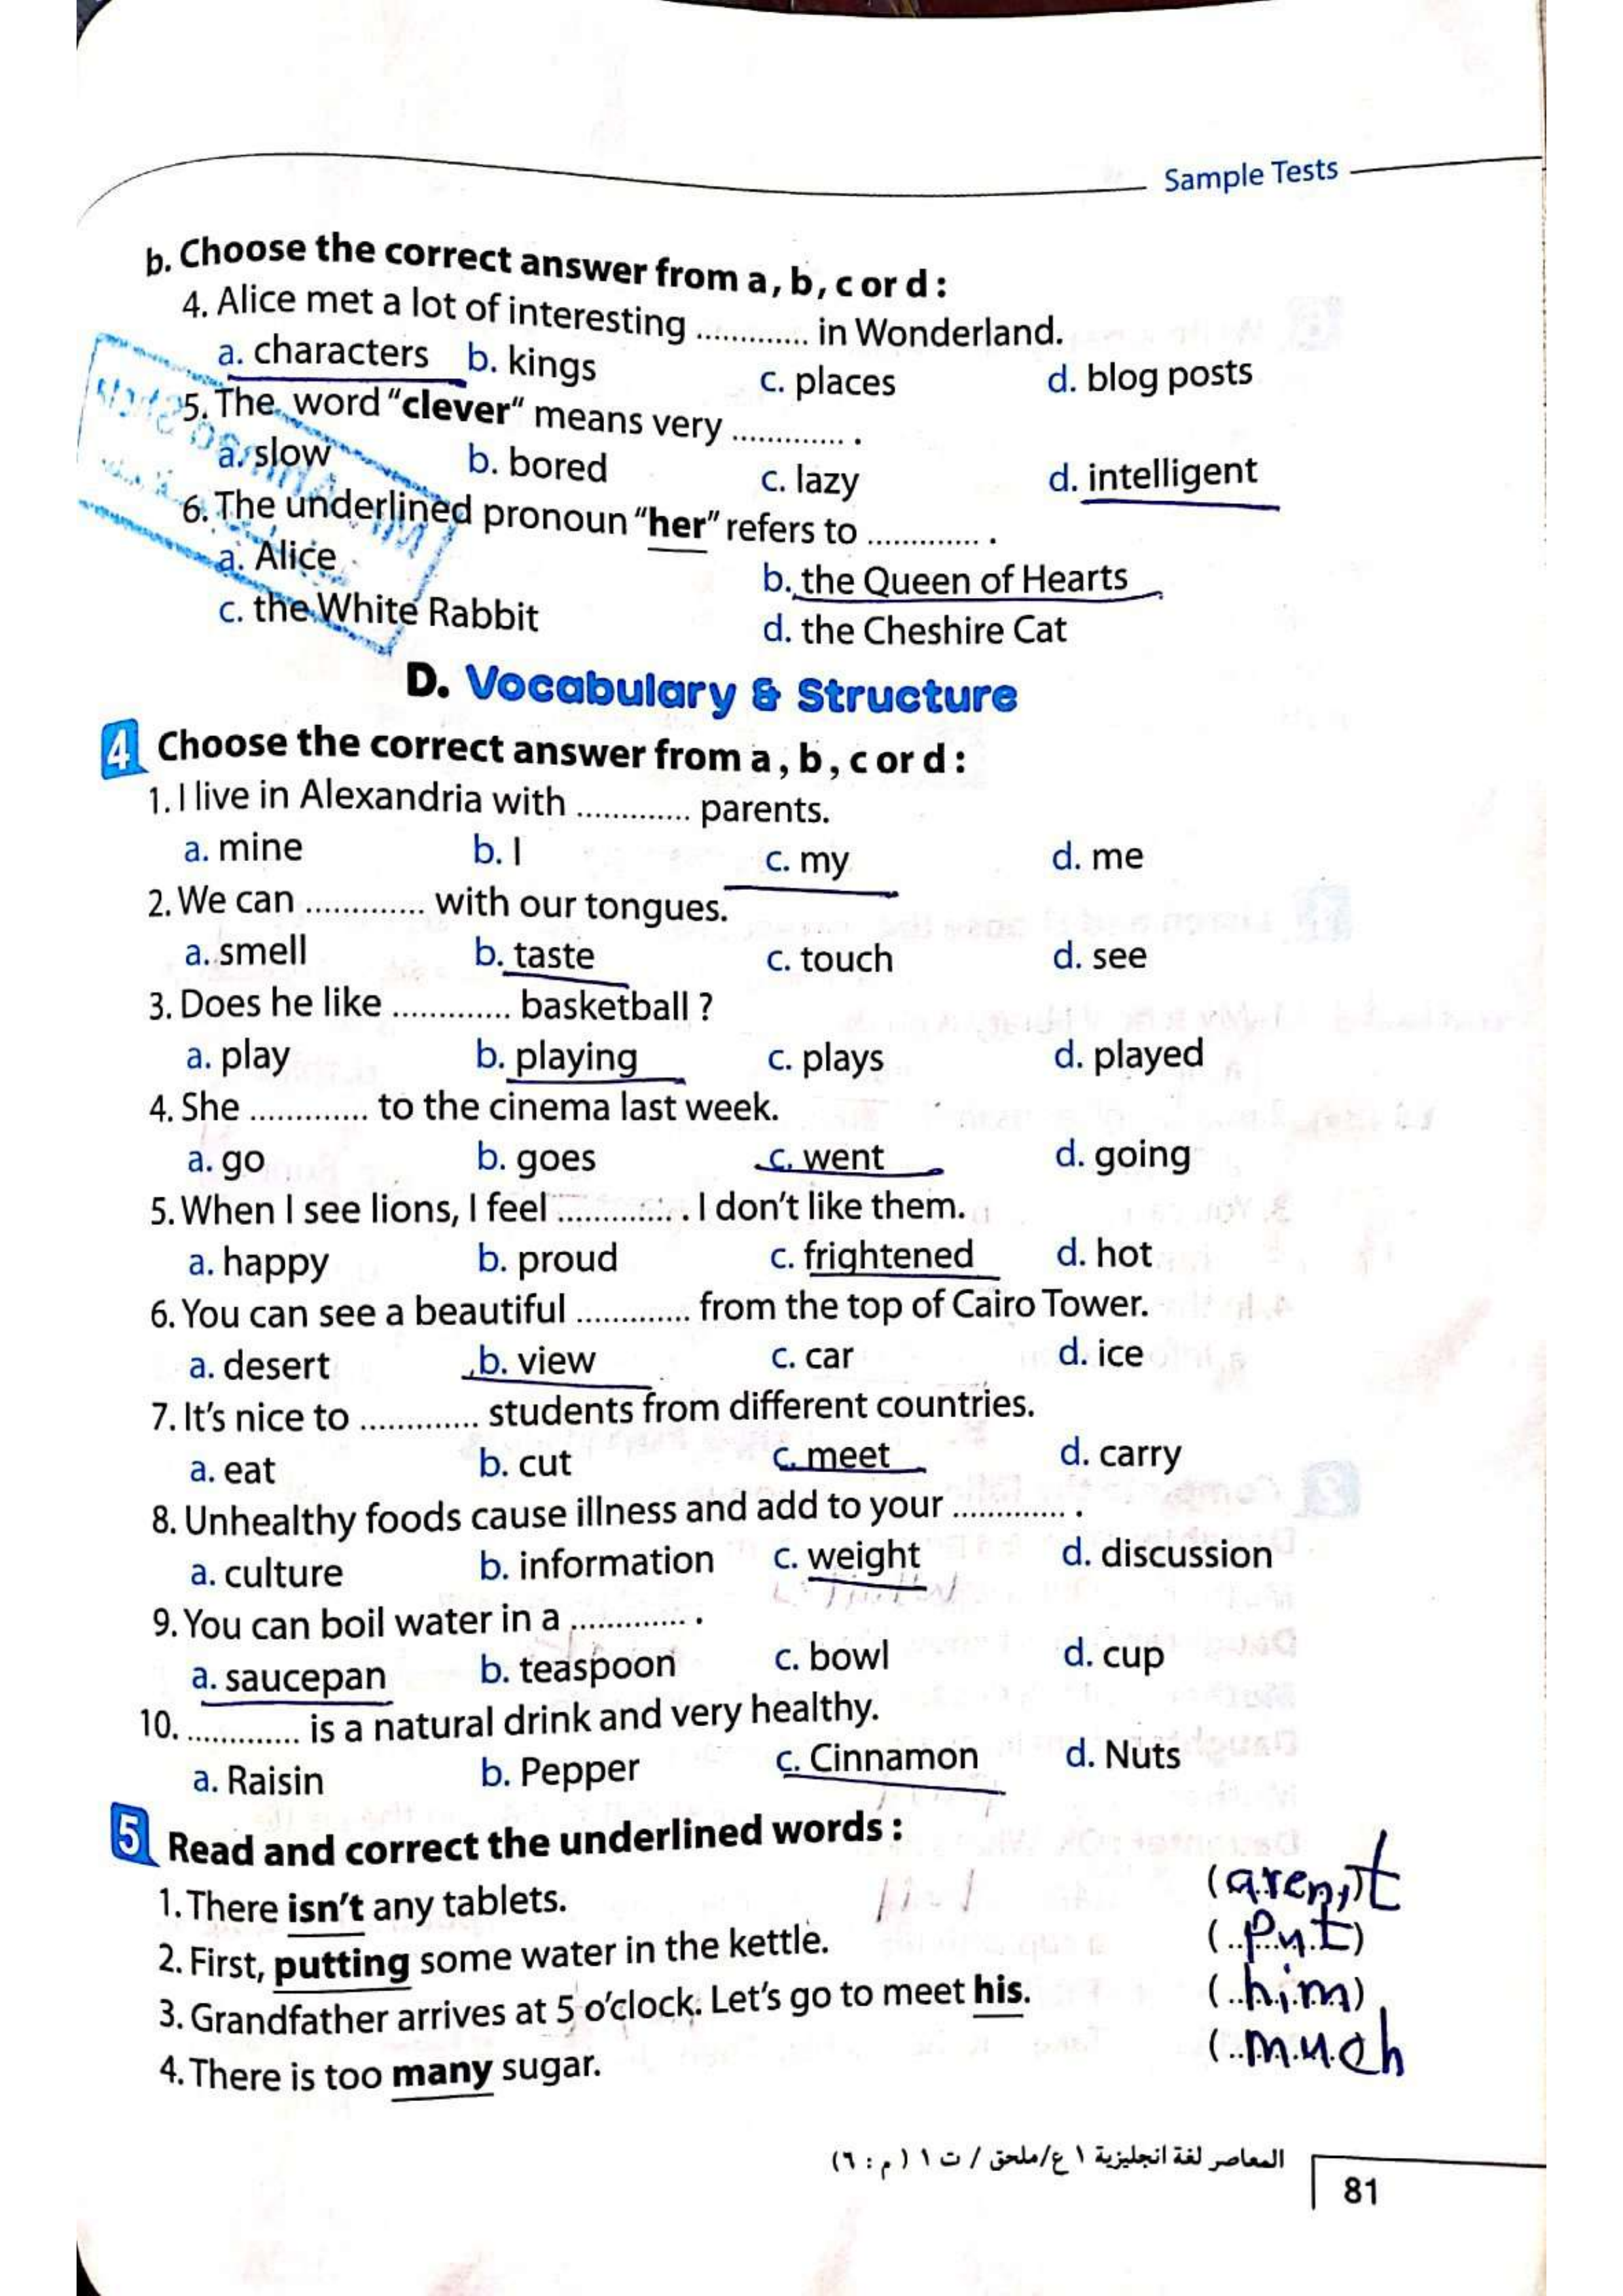 Sample Tests
b. Choose the correct answer from a, b, c or d :
4. Alice met a lot of interesting ............. in Wonderland.
a. characters b. kings c. places d. blog posts
5. The word "clever" means very ............. .
a. slow b. bored c. lazy d. intelligent
6. The underlined pronoun "her" refers to ............. .
a. Alice b. the Queen of Hearts
c. the White Rabbit d. the Cheshire Cat
D. Vocabulary & Structure
4 Choose the correct answer from a, b, c or d :
1. I live in Alexandria with ............. parents.
a. mine b. I c. my d. me
2. We can ............. with our tongues.
a. smell b. taste c. touch d. see
3. Does he like ............. basketball ?
a. play b. playing c. plays d. played
4. She ............. to the cinema last week.
a. go b. goes c. went d. going
5. When I see lions, I feel ............. . I don't like them.
a. happy b. proud c. frightened d. hot
6. You can see a beautiful ............. from the top of Cairo Tower.
a. desert b. view c. car d. ice
7. It's nice to ............. students from different countries.
a. eat b. cut c. meet d. carry
8. Unhealthy foods cause illness and add to your ............. .
a. culture b. information c. weight d. discussion
9. You can boil water in a ............. .
a. saucepan b. teaspoon c. bowl d. cup
10. ............. is a natural drink and very healthy.
a. Raisin b. Pepper c. Cinnamon d. Nuts
5 Read and correct the underlined words :
1. There isn't any tablets. (aren't)
2. First, putting some water in the kettle. (put)
3. Grandfather arrives at 5 o'clock. Let's go to meet his. (him)
4. There is too many sugar. (much
المعاصر لغة انجليزية ١ ع/ملحق / ت ١ ( م : ٦ )
81